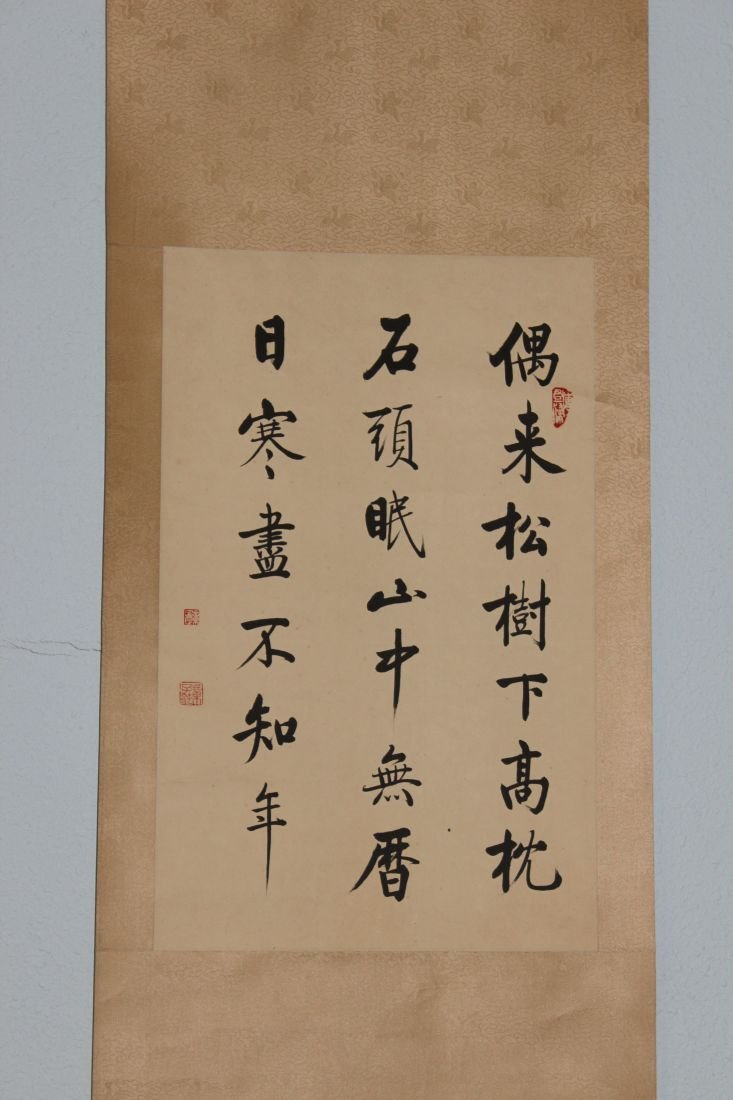 偶来松樹下高枕
石頭眠山中無暦
日寒盡不知年